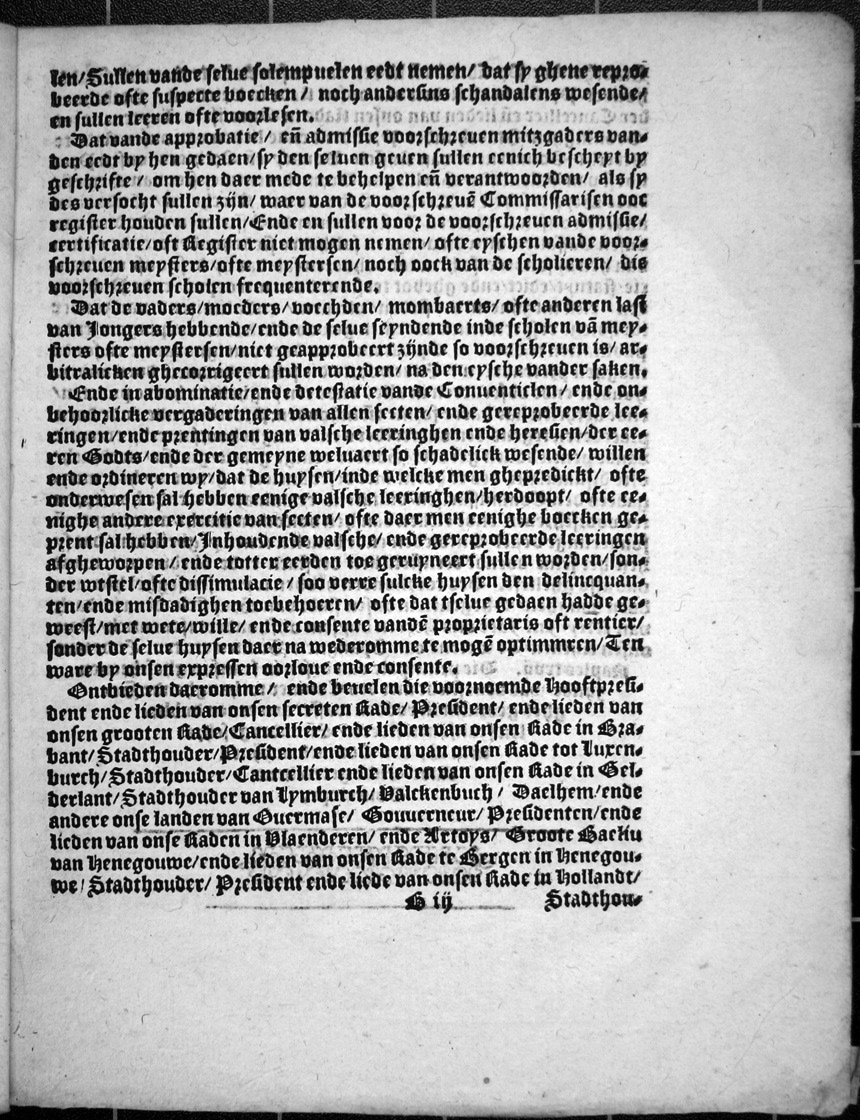 len/Sullen vande selue solempnelen eedt nemen/ dat sy ghene repro-
beerde ofte suspecte boecken/ noch andersins schandalens wesende/
en sullen leeren ofte voorlesen.
Dat vande approbatie/ eñ admissie voorschreuen mitzgaders van-
den eedt by hen gedaen/sy den seluen geuen sullen eenich bescheyt by
geschrifte/ om hen daer mede te behelpen eñ verantwoorden/ als sy
des versocht sullen zijn/ waer van de voorschreuē Commissarisen ooc
register houden sullen/Ende en sullen voor de voorschreuen admissie/
certificatie/oft Register niet mogen nemen/ ofte eyschen vande voor-
schreuen meysters/ofte meystersen/ noch oock van de scholieren/ die
voorschreuen scholen frequenterende.
Dat de vaders/moeders/voechden/ mombaerts/ ofte anderen last
van Jongers hebbende/ende de selue seyndende inde scholen vā mey-
sters ofte meystersen/niet geapprobeert zijnde so voorschreuen is/ ar-
bitralicken ghecorrigeert sullen worden/ na den eysche vander saken.
Ende in abominatie/ende detestatie vande Conuenticlen/ ende on-
behoorlicke vergaderingen van allen secten/ ende gereprobeerde lee-
ringen/ende prentingen van valsche leeringhen ende heresien/der ee-
ren Godts/ende der gemeyne weluaert so schadelick wesende/ willen
ende ordineren wy/dat de huysen/inde welcke men ghepredickt/ ofte
onderwesen sal hebben eenige valsche leeringhen/herdoopt/ ofte ee-
nighe andere exercitie van secten/ ofte daer men eenighe boecken ge-
prent sal hebben/Inhoudende valsche/ ende gereprobeerde leeringen
afgheworpen/ ende totter eerden toe geruyneert sullen worden/son-
der wtstel/ofte dissimulacie/ soo verre sulcke huysen den delincquan-
ten/ende misdadighen toebehoeren/ ofte dat tselue gedaen hadde ge-
weest/met wete/wille/ ende consente vandē proprietaris oft rentier/
sonder de selue huysen daer na wederomme te mogē optimmren/Ten
ware by onsen expressen oorloue ende consente.
Ontbieden daeromme/ ende beuelen die voornoemde Hooftpresi-
dent ende lieden van onsen secreten Rade/ President/ ende lieden van
onsen grooten Rade/Cancellier/ ende lieden van onsen Rade in Bra-
bant/Stadthouder/President/ende lieden van onsen Rade tot Luxen-
burch/Stadthouder/Cantcellier ende lieden van onsen Rade in Gel-
derlant/Stadthouder van Lymburch/ Valckenbuch/ Daelhem/ende
andere onse landen van Ouermase/ Gouuerneur/ Presidenten/ende
lieden van onse Raden in Vlaenderen/ ende Artoys/ Groote Bacliu
van Henegouwe/ende lieden van onsen Rade te Bergen in Henegou-
we/ Stadthouder/ President ende liede van onsen Rade in Hollandt/
B iij Stadthou-